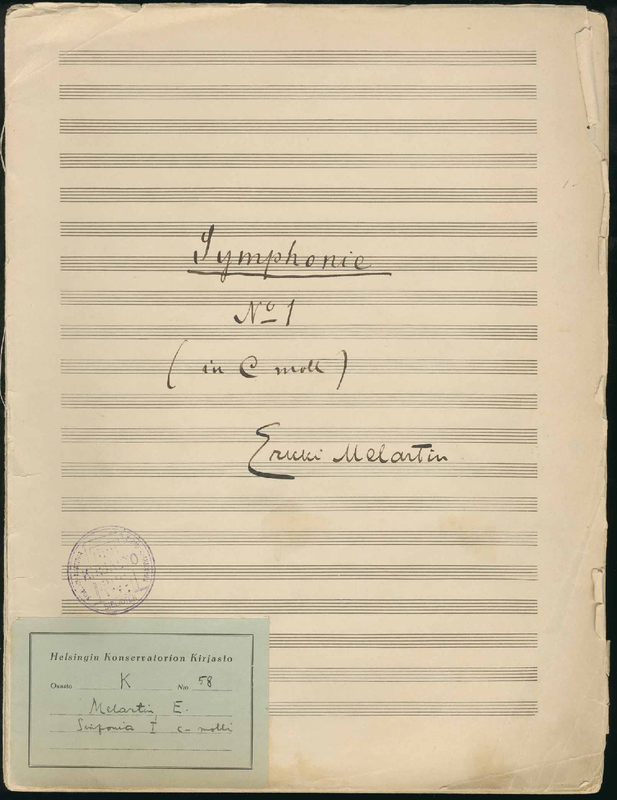 Symphonie
No 1
(in C moll)
Erkki Melartin
Helsingin Konservatorion Kirjasto
Osasto K N:o 58
Melartin, E.
Sinfonia I c-molli